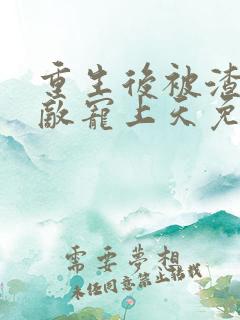 重生後被渣
敵寵上天免
需要夢想
未經同意禁止轉載